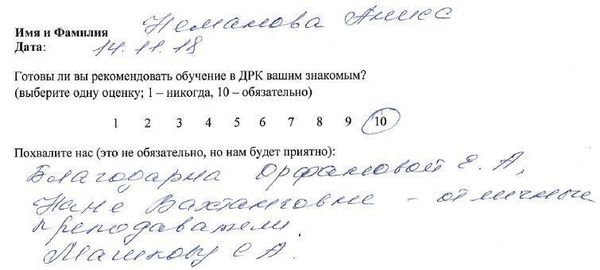 Имя и Фамилия Неманова Анисе
Дата: 14.11.18
Готовы ли вы рекомендовать обучение в ДРК вашим знакомым?
(выберите одну оценку; 1 – никогда, 10 – обязательно)
1 2 3 4 5 6 7 8 9 10
Похвалите нас (это не обязательно, но нам будет приятно):
Благодарна Орфановой Е. А,
Нане Вахтанговне - отличные
преподаватели
Машкову С А.